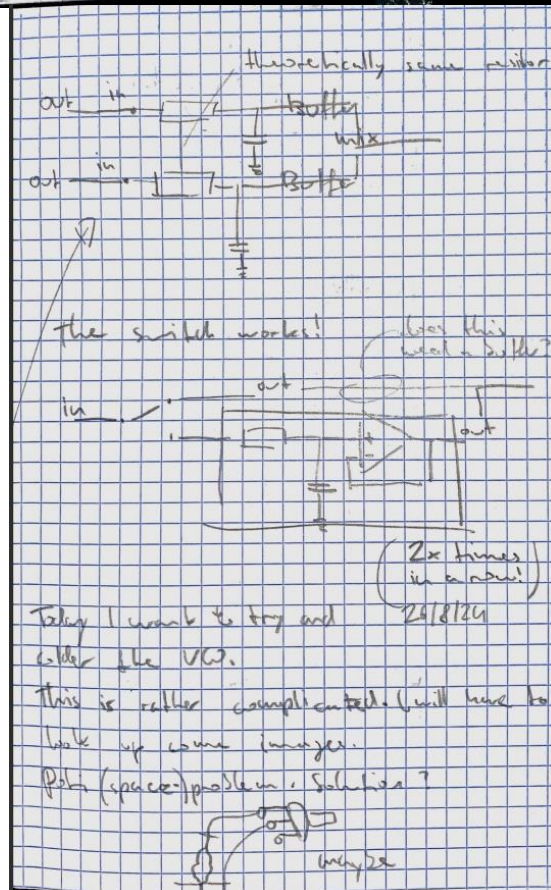 theoretically same resistor
out in Buffer
mix
out in Buffer
The switch works!
Does this
need a buffer?
out
in
out
+
-
(2x times
in a row!)
Today I want to try and 26/8/24
solder the VCO.
This is rather complicated. I will have to
look up some images.
Poti (space-)problem. Solution?
maybe